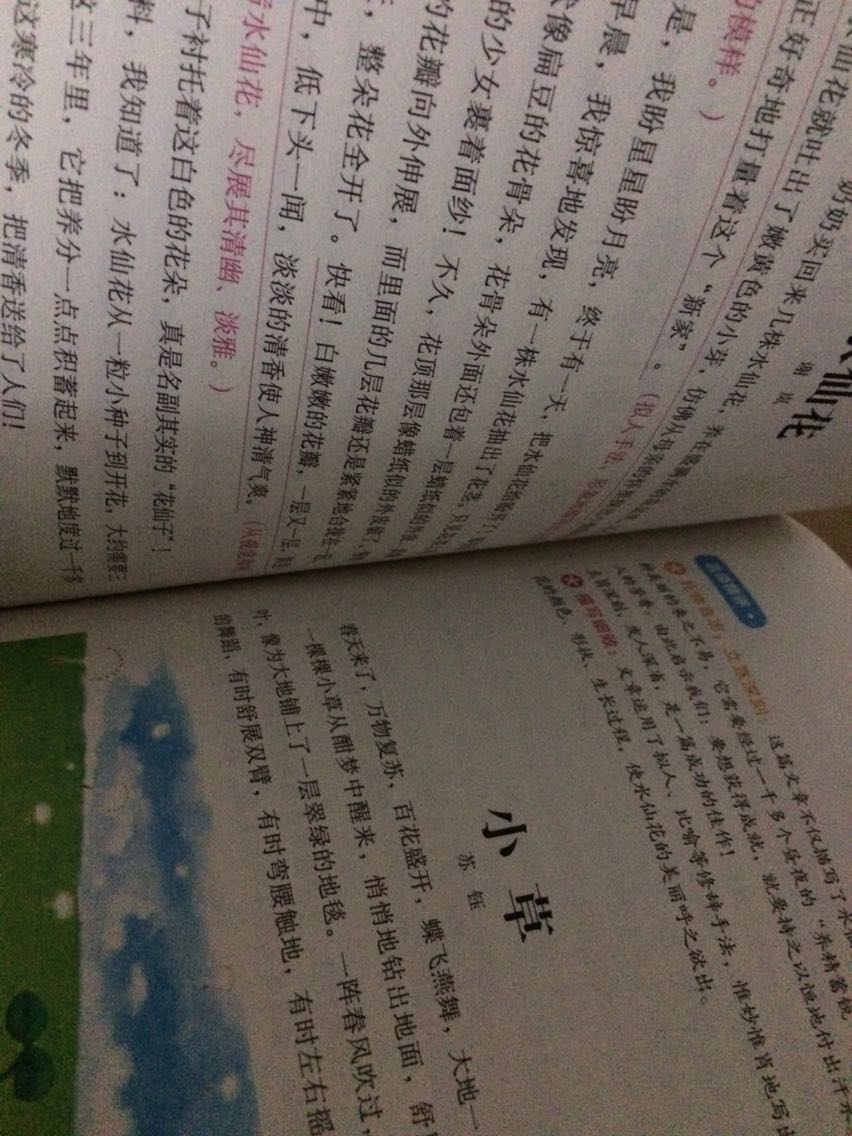 水仙花
奶奶买回来几株水仙花，养在
仙花就吐出了嫩黄色的小芽，仿佛从母亲的
正好奇地打量着这个“新家”。（拟人手法，
的模样。）
是，我盼星星盼月亮，终于有一天，把水仙花给盼
早晨，我惊喜地发现，有一株水仙花抽出了花茎，
像扁豆的花骨朵，花骨朵外面还包着一层蜡纸似的外
的少女裹着面纱！不久，花顶那层像蜡纸似的外皮破了，
的花瓣向外伸展，而里面的几层花瓣还是紧紧地合拢在一
，整朵花全开了。快看！白嫩嫩的花瓣，一层又一层，
中，低下头一闻，淡淡的清香使人神清气爽。（从
水仙花，尽展其清幽、淡雅。）
子衬托着这白色的花朵，真是名副其实的“花仙子”！
料，我知道了：水仙花从一粒小种子到开花，大约需要三
这三年里，它把养分一点点积蓄起来，默默地度过一千多
这寒冷的冬季，把清香送给了人们！
立意深刻：这篇文章不仅描写了水仙
来之不易，它需要经过一千多个昼夜的“养精蓄锐
人的芳香，由此启示我们：要想获得成就，就要持之以恒地付出汗水
立意深刻，发人深省，是一篇成功的佳作！
描写细致：文章运用了拟人、比喻等修辞手法，惟妙惟肖地写出
花的颜色、形状、生长过程，使水仙花的美丽呼之欲出。
小草
苏钰
春天来了，万物复苏，百花盛开，蝶飞燕舞，大地一
一棵棵小草从酣梦中醒来，悄悄地钻出地面，舒
叶，像为大地铺上了一层翠绿的地毯。一阵春风吹过，
的舞蹈，有时舒展双臂，有时弯腰触地，有时左右摇